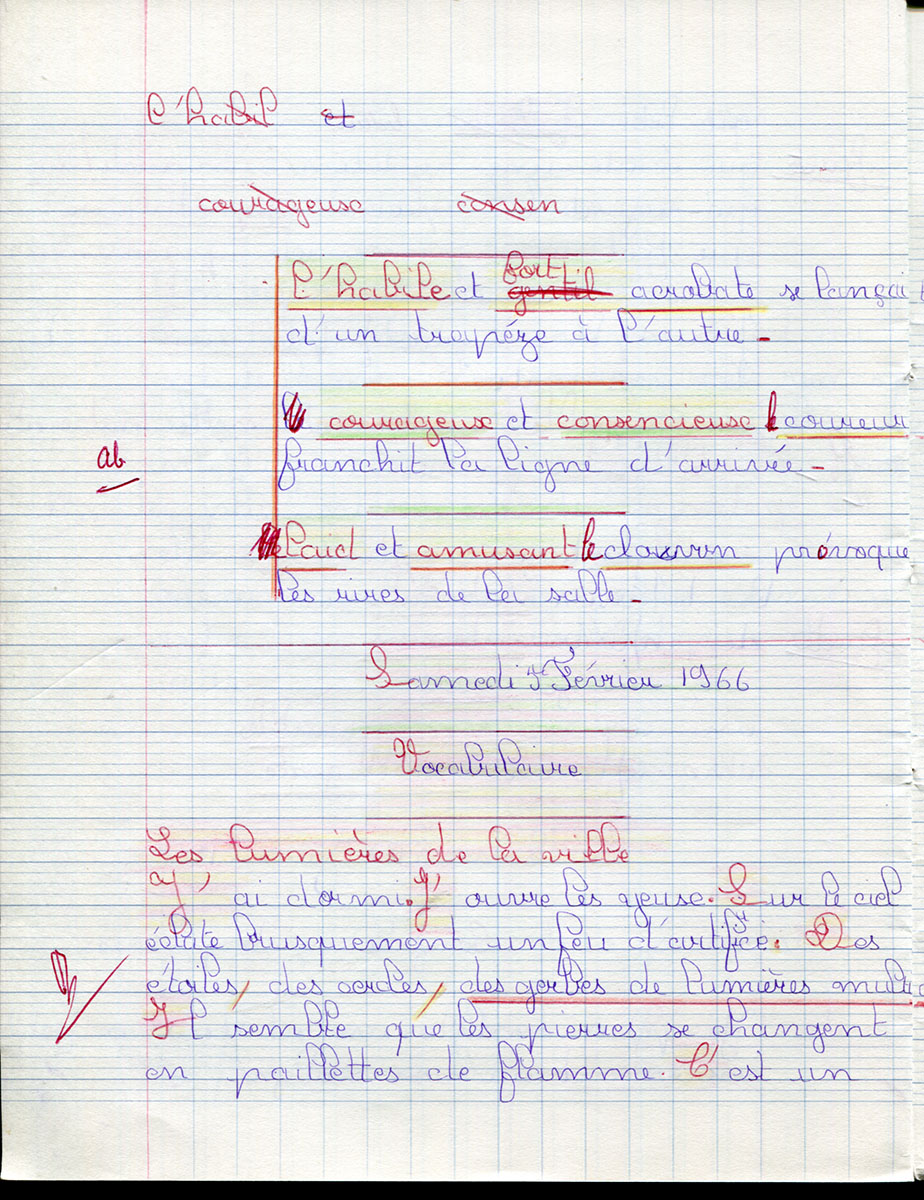 l'habil et
courageuse consen
fort
l'habile et gentil acrobate se lançai
d'un trapéze à l'autre.
courageuse et consencieuse le coureur
ab
franchit la ligne d'arrivée.
Laid et amusant le clown provoque
les rires de la salle.
Samedi 5 Février 1966
Vocabulaire
Les lumières de la ville
J'ai dormi. J'ouvre les yeuse. Sur le ciel
éclate brusquement un feu d'artifice. Des
étoiles, des cercles, des gerbes de lumières multic
Il semble que les pierres se changent
en paillettes de flamme. C'est un